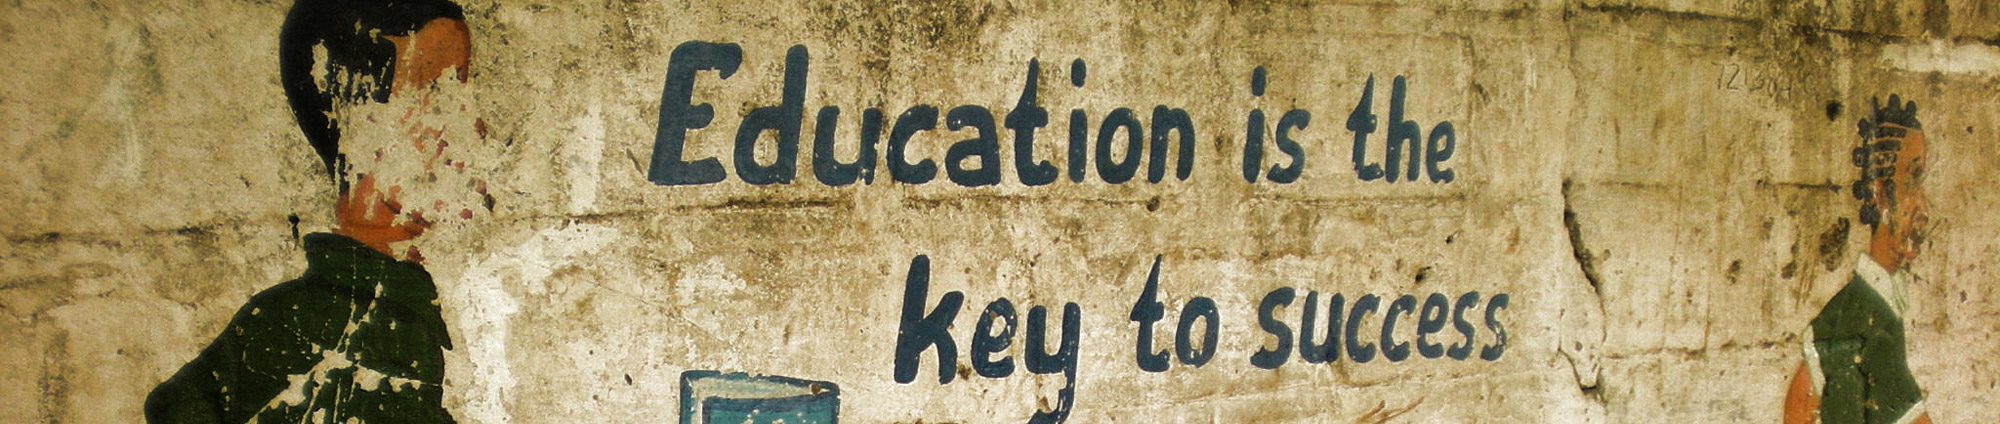 Education is the
key to success